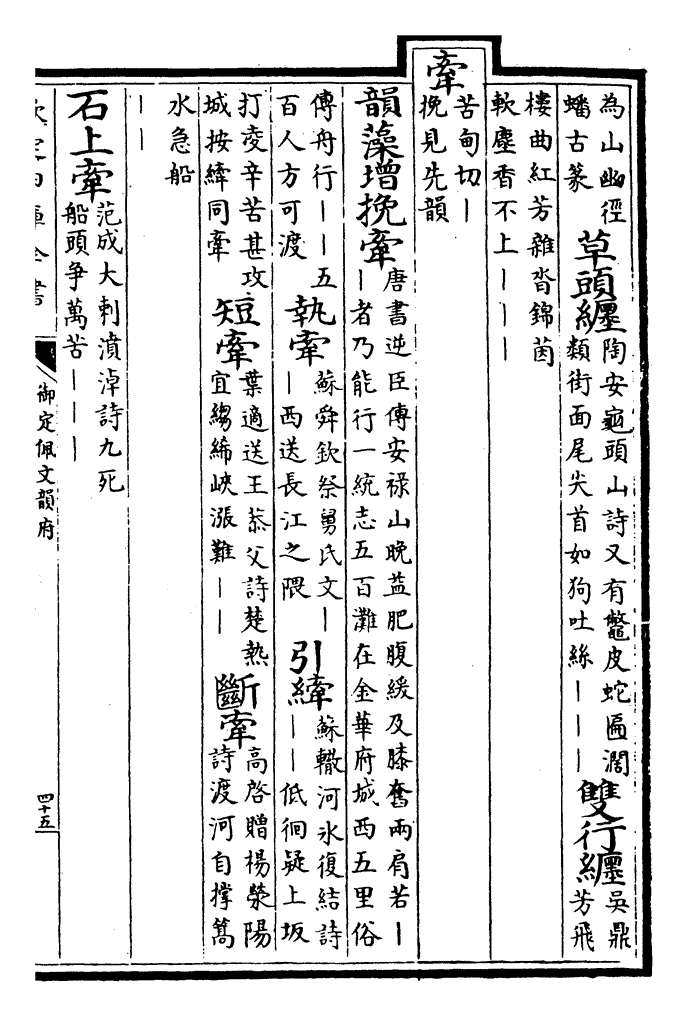 為山幽徑蟠古篆 草頭纒 陶安龜頭山詩又有鼈皮蛇匾濶類街面尾尖首如狗吐絲｜｜｜ 雙行纒 吳鼎芳飛
樓曲紅芳雜沓錦茵軟塵香不上｜｜｜
牽 苦甸切｜挽見先韻
韻藻增挽牽 唐書逆臣傳安禄山晚益肥腹緩及膝奮兩肩若｜｜者乃能行一統志五百灘在金華府城西五里俗
傳舟行｜｜五百人方可渡 執牽 蘇舜欽祭舅氏文｜｜西送長江之隈 引縴 蘇轍河氷復結詩｜｜低徊疑上坂
打凌辛苦甚攻城按縴同牽 短牽 葉適送王恭父詩楚熱宜縐絺峽漲難｜｜ 斷牽 高啓贈楊滎陽詩渡河自撑篙
水急船｜｜
石上牽 范成大刺濆淖詩九死船頭争萬苦｜｜｜
欽定四庫全書
御定佩文韻府
四十五